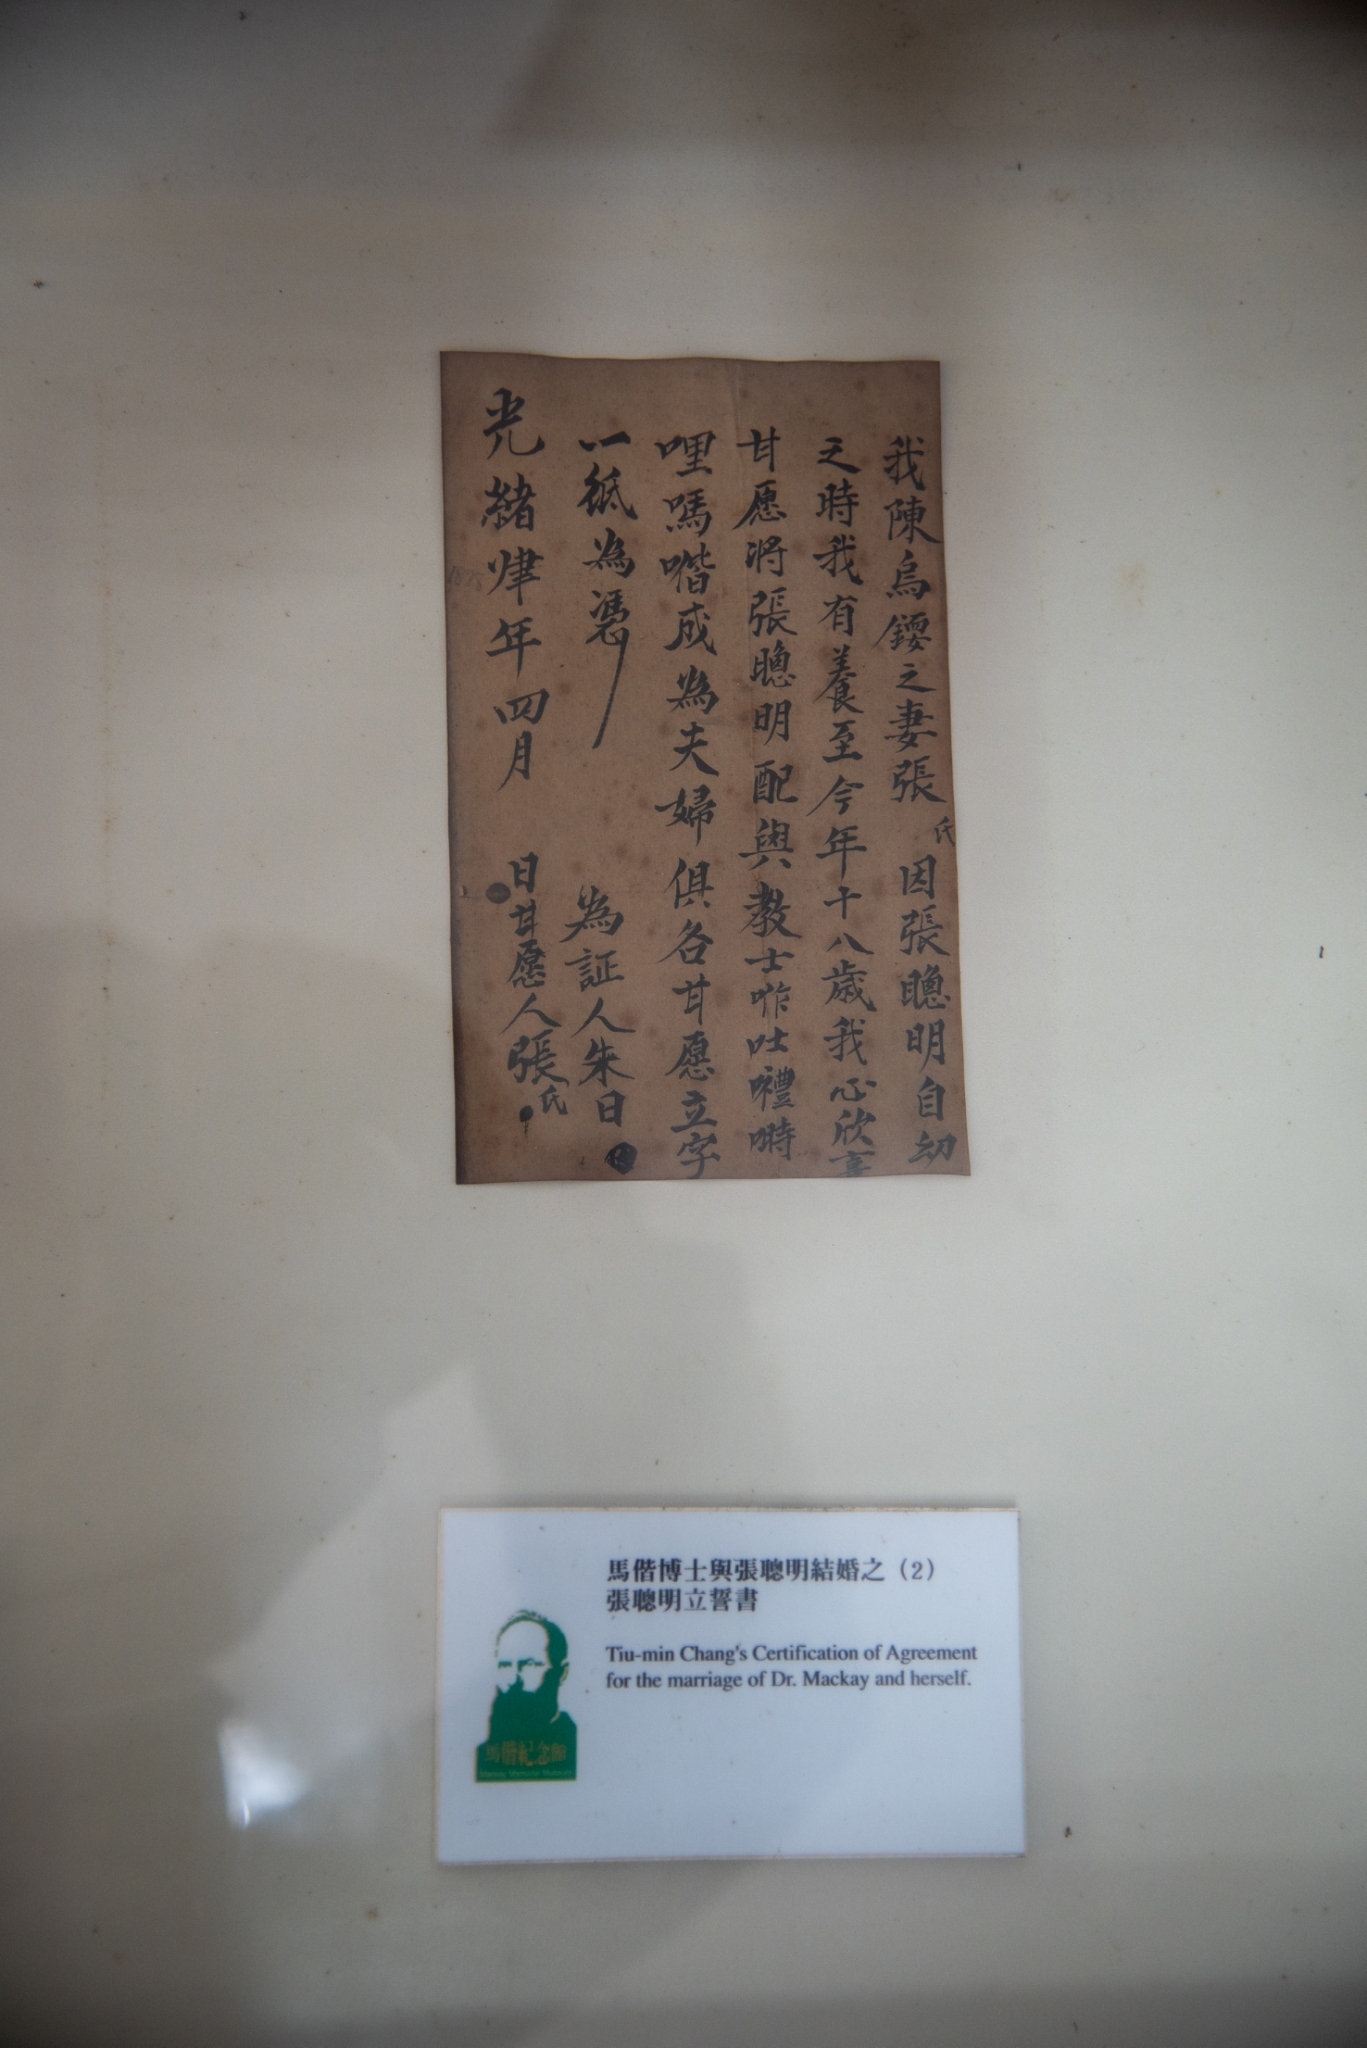 我陳烏鐚之妻張氏因張聰明自幼
之時我有養至今年十八歲我心欣喜
甘愿將張聰明配與教士咋吐禮嘚
哩嗎喈成為夫婦俱各甘愿立字
一紙為憑
為証人朱日
光緒肆年四月 日甘愿人張氏
1878
馬偕博士與張聰明結婚之（2）
張聰明立誓書
Tiu-min Chang's Certification of Agreement
for the marriage of Dr. Mackay and herself.
馬偕紀念館